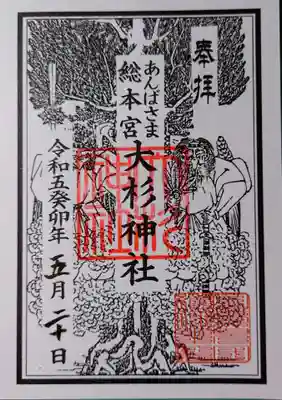 奉拝
あんばさま
総本宮
大杉神社
令和五癸卯年 五月二十日